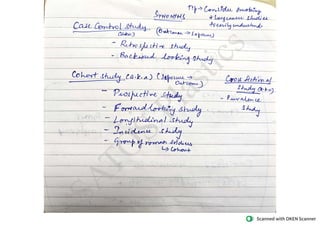 SYNONYMS
Tip → Consider smoking
& lung cancer studies
to easily understand
Case Control study
(aka) (Outcome → Exposure)
- Retrospective study
- Backward looking study
Cohort study (a.k.a) (Exposure →
Outcome)
- Prospective study
- Forward looking study
- Longitudinal study
- Incidence study
- Group of roman soldiers
↳ Cohort
Cross Sectional
Study (a.k.a)
- Prevalence
Study
Scanned with OKEN Scanner